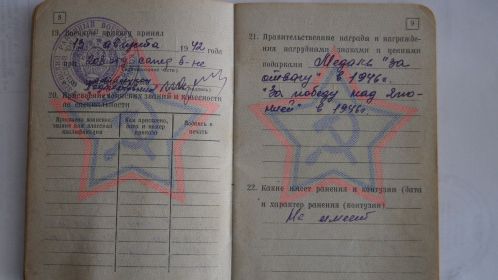 8
19. Военную присягу принял
13 августа 1942 года
при сапер. б-не
20. Присвоение воинских званий и классности
по специальности
Присвоено воинское
звание или классная
квалификация
Кем присвоено,
дата и номер
приказа
Подпись и
печать
9
21. Правительственные награды и награждения
нагрудными знаками и ценными
подарками Медаль "за
отвагу" в 1946г.
"За победу над Япо-
нией" в 1946г.
22. Какие имеет ранения и контузии (дата
и характер ранения (контузии)
Не имеет